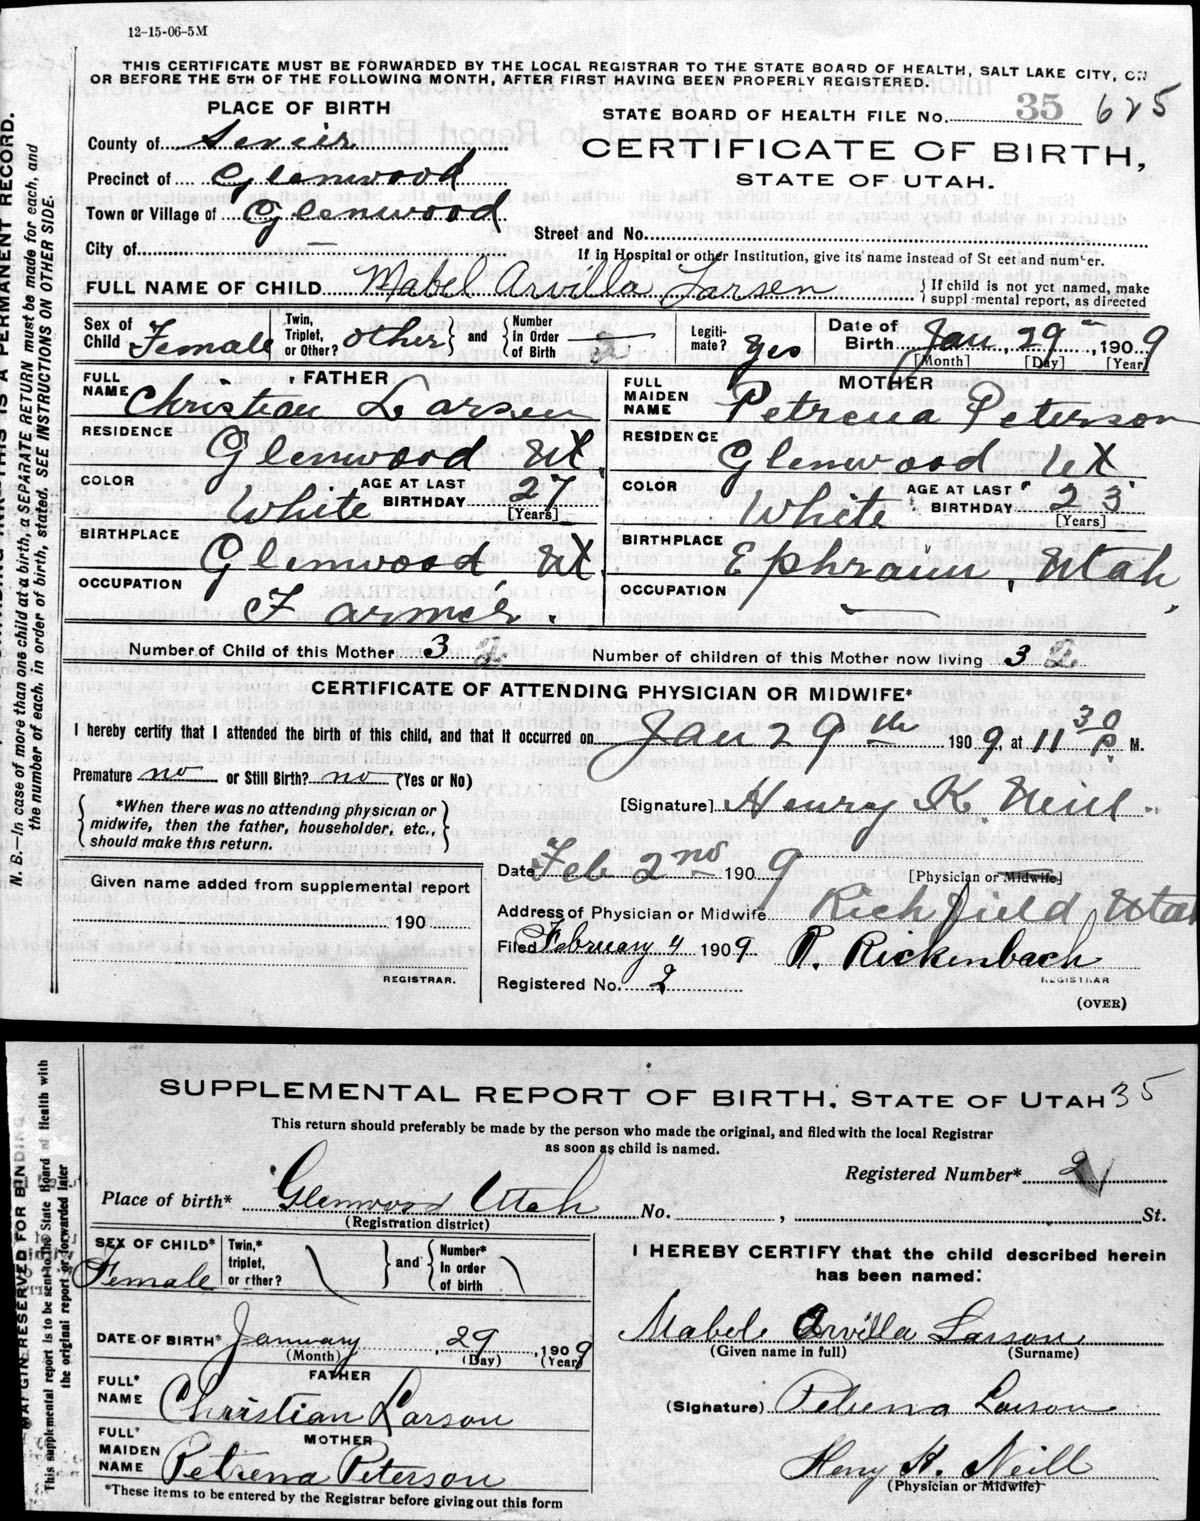 12-15-06-5M
THIS CERTIFICATE MUST BE FORWARDED BY THE LOCAL REGISTRAR TO THE STATE BOARD OF HEALTH, SALT LAKE CITY, ON
OR BEFORE THE 5TH OF THE FOLLOWING MONTH, AFTER FIRST HAVING BEEN PROPERLY REGISTERED.
PLACE OF BIRTH
STATE BOARD OF HEALTH FILE No. 35 625
County of Sevier
CERTIFICATE OF BIRTH,
Precinct of Glenwood
STATE OF UTAH.
Town or Village of Glenwood
Street and No.
City of —
If in Hospital or other Institution, give its name instead of St eet and number.
FULL NAME OF CHILD Mabel Arvilla Larsen } If child is not yet named, make
suppl mental report, as directed
Sex of Child Female
Twin, Triplet, or Other? other } and { Number In Order of Birth 2
Legiti-mate? yes
Date of Birth Jan, 29, 1909
[Month] [Day] [Year]
FATHER
FULL NAME Christian Larsen
RESIDENCE Glenwood Ut.
COLOR White
AGE AT LAST BIRTHDAY 27 [Years]
BIRTHPLACE Glenwood Ut.
OCCUPATION Farmer.
MOTHER
FULL MAIDEN NAME Petrena Peterson
RESIDENCE Glenwood Ut
COLOR White
AGE AT LAST BIRTHDAY 23 [Years]
BIRTHPLACE Ephraim, Utah,
OCCUPATION —
Number of Child of this Mother 3 2
Number of children of this Mother now living 3 2
CERTIFICATE OF ATTENDING PHYSICIAN OR MIDWIFE*
I hereby certify that I attended the birth of this child, and that it occurred on Jan 29th 1909, at 11 30 P. M.
Premature no or Still Birth? no (Yes or No)
{ *When there was no attending physician or
midwife, then the father, householder, etc.,
should make this return. }
[Signature] Henry K. Neill
[Physician or Midwife]
Date Feb 2nd 1909
Given name added from supplemental report
190
REGISTRAR.
Address of Physician or Midwife Richfield Utah
Filed February 4 1909 P. Rickenbach
REGISTRAR
Registered No. 2
(OVER)
N. B.—In case of more than one child at a birth, a SEPARATE RETURN must be made for each, and
the number of each, in order of birth, stated. SEE INSTRUCTIONS ON OTHER SIDE.
THIS IS A PERMANENT RECORD.
SUPPLEMENTAL REPORT OF BIRTH. STATE OF UTAH 35
This return should preferably be made by the person who made the original, and filed with the local Registrar
as soon as child is named.
Registered Number* 2
Place of birth* Glenwood Utah No. , St.
(Registration district)
SEX OF CHILD* Female
Twin,* triplet, or other? } and { Number* In order of birth
DATE OF BIRTH* January, 29, 1909
(Month) (Day) (Year)
FATHER
FULL* NAME Christian Larson
MOTHER
FULL* MAIDEN NAME Petrena Peterson
*These items to be entered by the Registrar before giving out this form
I HEREBY CERTIFY that the child described herein
has been named:
Mabele Arvilla Larson
(Given name in full) (Surname)
(Signature) Petrena Larson
Henry K. Neill
(Physician or Midwife)
MARGIN RESERVED FOR BINDING
This supplemental report is to be sent to the State Board of Health with
the original report or forwarded later